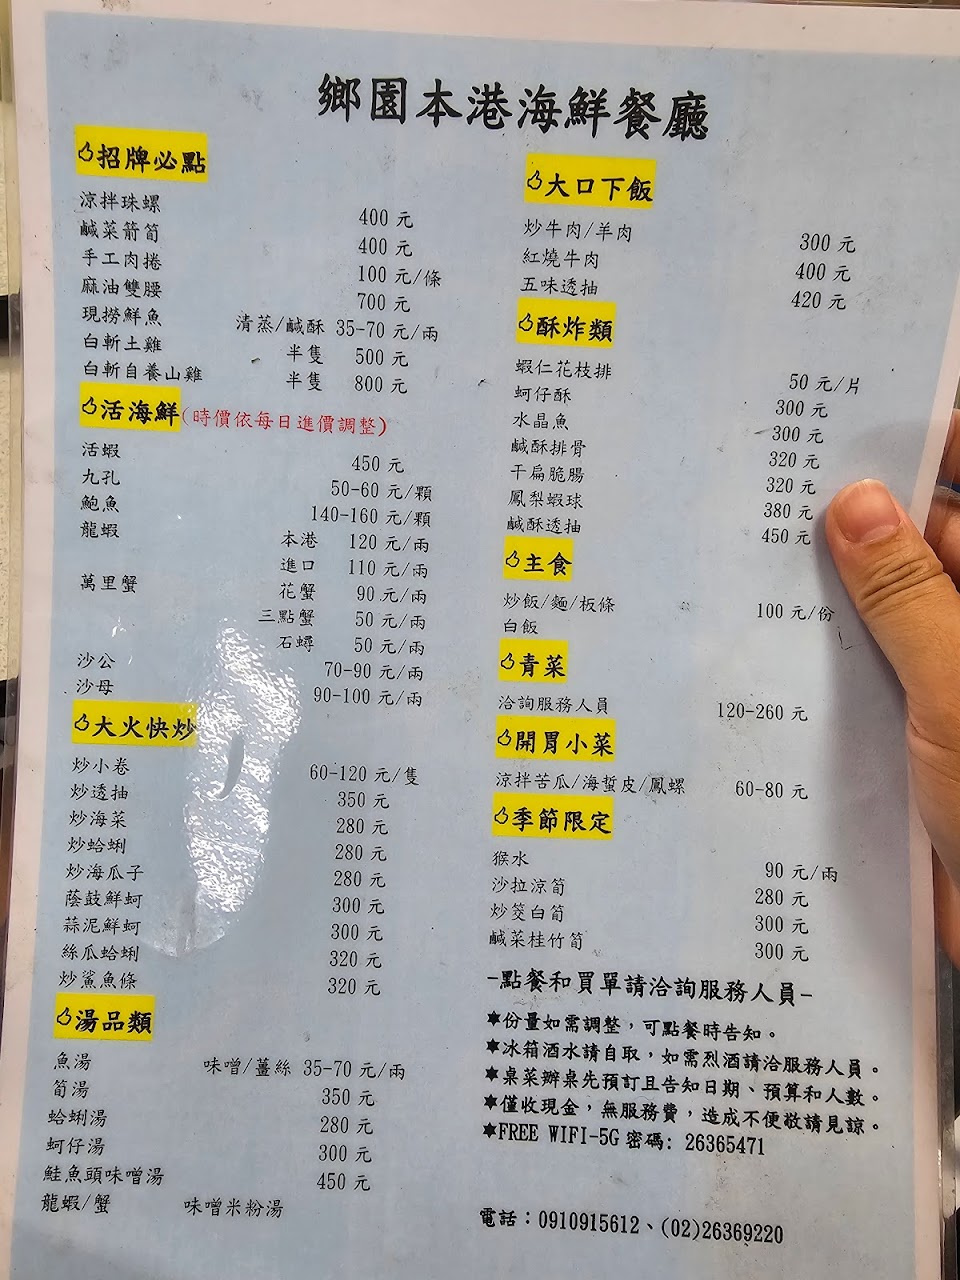 鄉園本港海鮮餐廳
招牌必點
涼拌珠螺 400 元
鹹菜箭筍 400 元
手工肉捲 100 元/條
麻油雙腰 700 元
現撈鮮魚 清蒸/鹹酥 35-70 元/兩
白斬土雞 半隻 500 元
白斬自養山雞 半隻 800 元
活海鮮(時價依每日進價調整)
活蝦 450 元
九孔 50-60 元/顆
鮑魚 140-160 元/顆
龍蝦 本港 120 元/兩
進口 110 元/兩
萬里蟹 花蟹 90 元/兩
三點蟹 50 元/兩
石蟳 50 元/兩
沙公 70-90 元/兩
沙母 90-100 元/兩
大火快炒
炒小卷 60-120 元/隻
炒透抽 350 元
炒海菜 280 元
炒蛤蜊 280 元
炒海瓜子 280 元
蔭鼓鮮蚵 300 元
蒜泥鮮蚵 300 元
絲瓜蛤蜊 320 元
炒鯊魚條 320 元
湯品類
魚湯 味噌/薑絲 35-70 元/兩
筍湯 350 元
蛤蜊湯 280 元
蚵仔湯 300 元
鮭魚頭味噌湯 450 元
龍蝦/蟹 味噌米粉湯
大口下飯
炒牛肉/羊肉 300 元
紅燒牛肉 400 元
五味透抽 420 元
酥炸類
蝦仁花枝排 50 元/片
蚵仔酥 300 元
水晶魚 300 元
鹹酥排骨 320 元
干扁脆腸 320 元
鳳梨蝦球 380 元
鹹酥透抽 450 元
主食
炒飯/麵/板條 100 元/份
白飯
青菜
洽詢服務人員 120-260 元
開胃小菜
涼拌苦瓜/海蜇皮/鳳螺 60-80 元
季節限定
猴水 90 元/兩
沙拉涼筍 280 元
炒筊白筍 300 元
鹹菜桂竹筍 300 元
-點餐和買單請洽詢服務人員-
✶份量如需調整，可點餐時告知。
✶冰箱酒水請自取，如需烈酒請洽服務人員。
✶桌菜辦桌先預訂且告知日期、預算和人數。
✶僅收現金，無服務費，造成不便敬請見諒。
✶FREE WIFI-5G 密碼: 26365471
電話：0910915612、(02)26369220